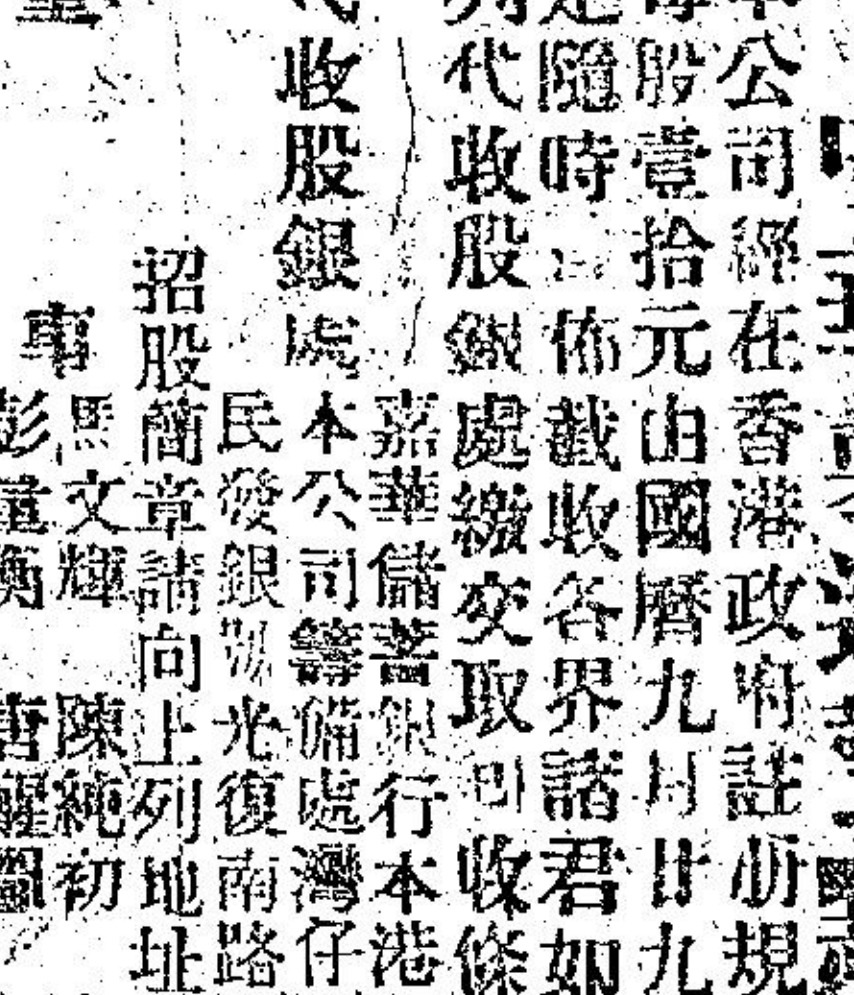 公司經在香港政府註冊規
股壹拾元由國曆九月廿九
隨時佈截收各界諸君如
代收股銀處繳交取回收條
嘉華儲蓄銀行本港
收股銀處本公司籌備處灣仔
民發銀號光復南路
招股簡章請向上列地址
馬文輝 陳純初
彭 衡 唐醒